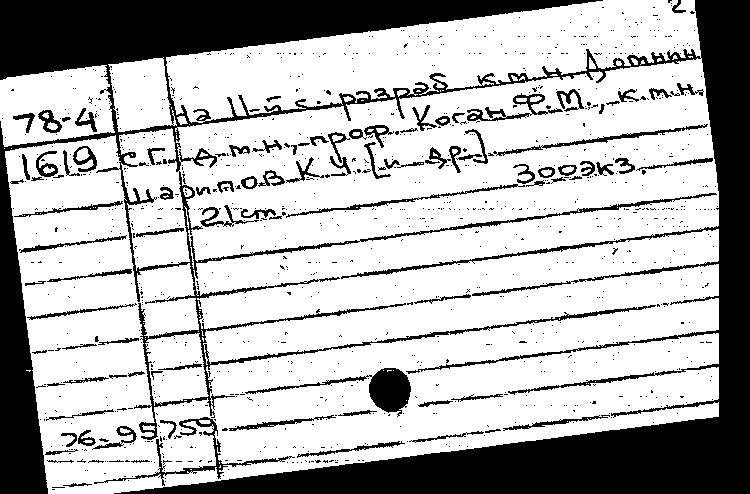 2.
78-4 На II-й с.: разраб к.т.н. Дотнин
1619 с.г., д.т.н., проф. Коган Ф.М., к.т.н.
Шарипов К Ч. [и др.]
21 ст. 300экз.
76-95759